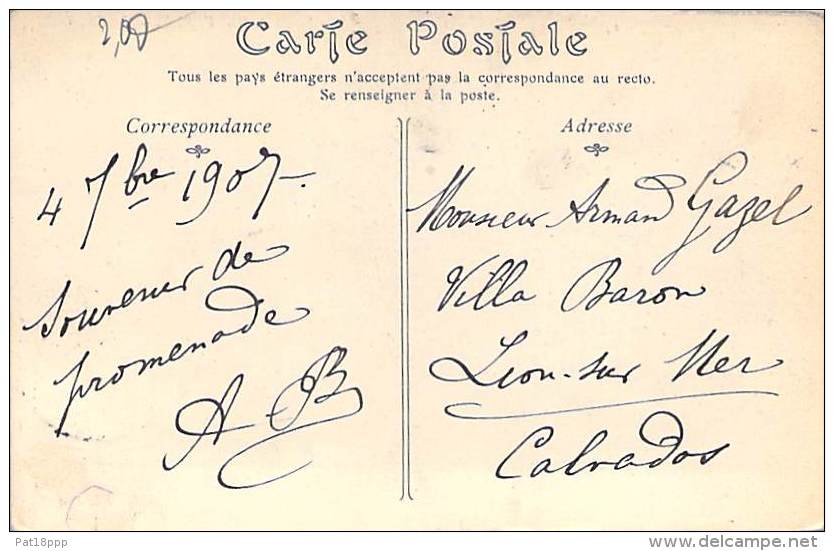 Carte Postale
Tous les pays étrangers n'acceptent pas la correspondance au recto.
Se renseigner à la poste.
Correspondance
4 7bre 1907.
Souvenir de
promenade
A B
Adresse
Monsieur Armand Gazel
Villa Baron
Lion-sur Mer
Calvados
Pat18ppp
delcampe.net